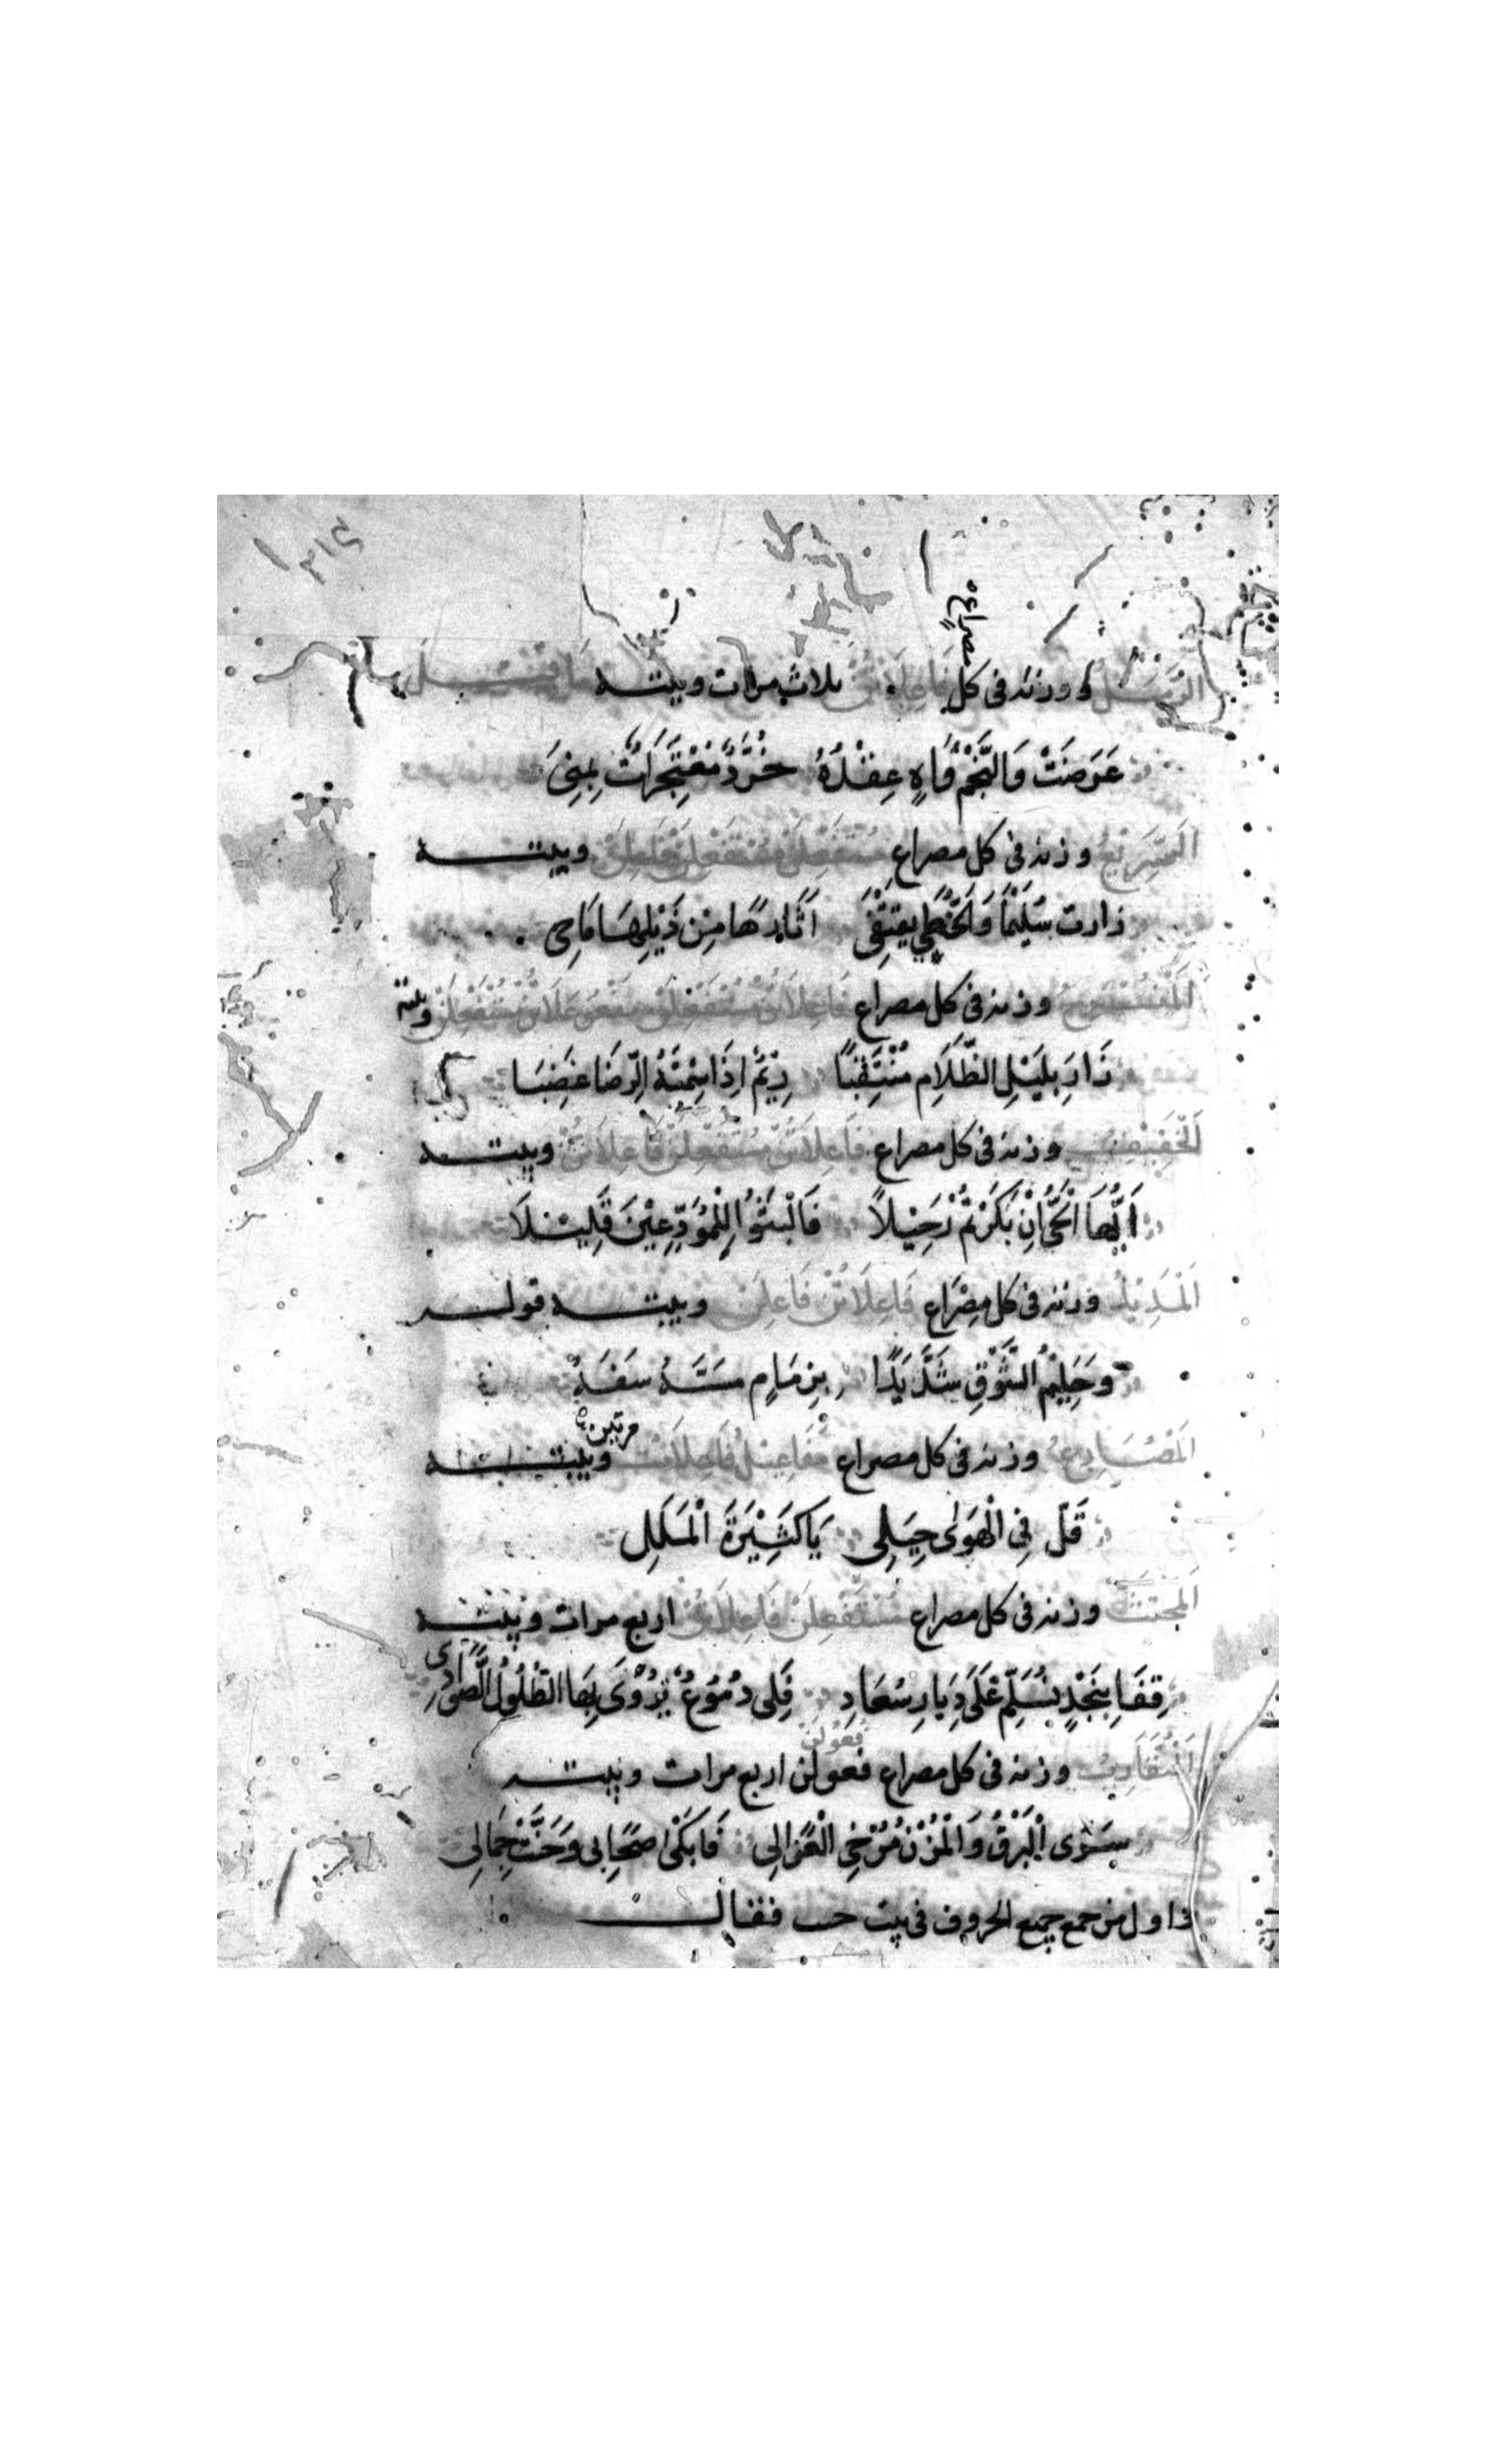 الرمل ووزنه فى كل مصراع فاعلاتن ثلاث مرات وبيته
عَرَضَتْ وَالنَّجْمُ وَاهٍ عِقْدُهُ خُرَّدٌ مُعْتَجِرَاتٌ بِمِنىَ
اَلسَّرِيْعُ وزنه فى كل مصراع مُسْتَفْعِلُنْ مُسْتَفْعِلُنْ فَاعِلُنْ وبيته
زارت سُلَيْمَا وَالْخُطَي يقتفى آثَارِهَا مِنْ ذَيْلِهَا مَاحِى
اَلْمُنْسَرِحُ وزنه فى كل مصراع وبيته
زَارَ بِلَيْلِ الظَّلَامِ مُنْتَقِبًا رِيْمٌ اِذَا سِمْتَهُ الرِّضَا غَضِبَا
اَلْخَفِيْفُ وزنه فى كل مصراع فَاعِلَاتُنْ مُسْتَفْعِلُنْ فَاعِلَاتُنْ وبيته
اَيُّهَا الْحَىُّ اِنْ بَكَرْتُمْ رَحِيْلاً فَالْبَثُوْا لِلْمُوَدِّعِيْنَ قَلِيْلَا
اَلْمَدِيْدُ وزنه فى كل مِصْرَاع فَاعِلَاتُنْ فَاعِلُنْ وبيته قوله
وحَلِيْمُ الشَّوْقِ شَدَّ يَدًا بِزِمَامٍ مَسَّهُ سَفَهُ
اَلْمُضَارِعُ وزنه فى كل مصراع مَفَاعِيْلُ فَاعِلَاتُنْ مرتين وبيته
قَلَّ فِى الْهَوٰى حِيَلِى يَا كَثِيْرَةَ الْمَلَلِ
اَلْمُجْتَثُّ وزنه فى كل مصراع مُسْتَفْعِلُنْ فَاعِلَاتُنْ اربع مرات وبيته
قِفَا بِنَجْدٍ نُسَلِّمْ عَلَى دِيَارِ سُعَادِ فَلِى دُمُوْعٌ تُرْوٰى بِهَا الطُّلُوْلُ الصَّوَادِى
اَلْمُتَقَارِبُ وزنه فى كل مصراع فعولن اربع مرات وبيته
سَرٰى الْبَرْقُ وَالْمُزْنُ مُرْخِى الْعَزَالِى فَابَكَىٰ صِحَابِى وَحَنَّتْ جِمَالِى
اول من جمع جميع الحروف فى بيت فقال